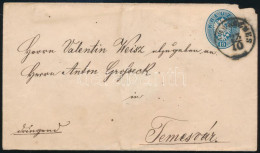 Herrn Valentin Weisz abzugeben an
Herrn Anton
in
dringend
Temesvár.
10